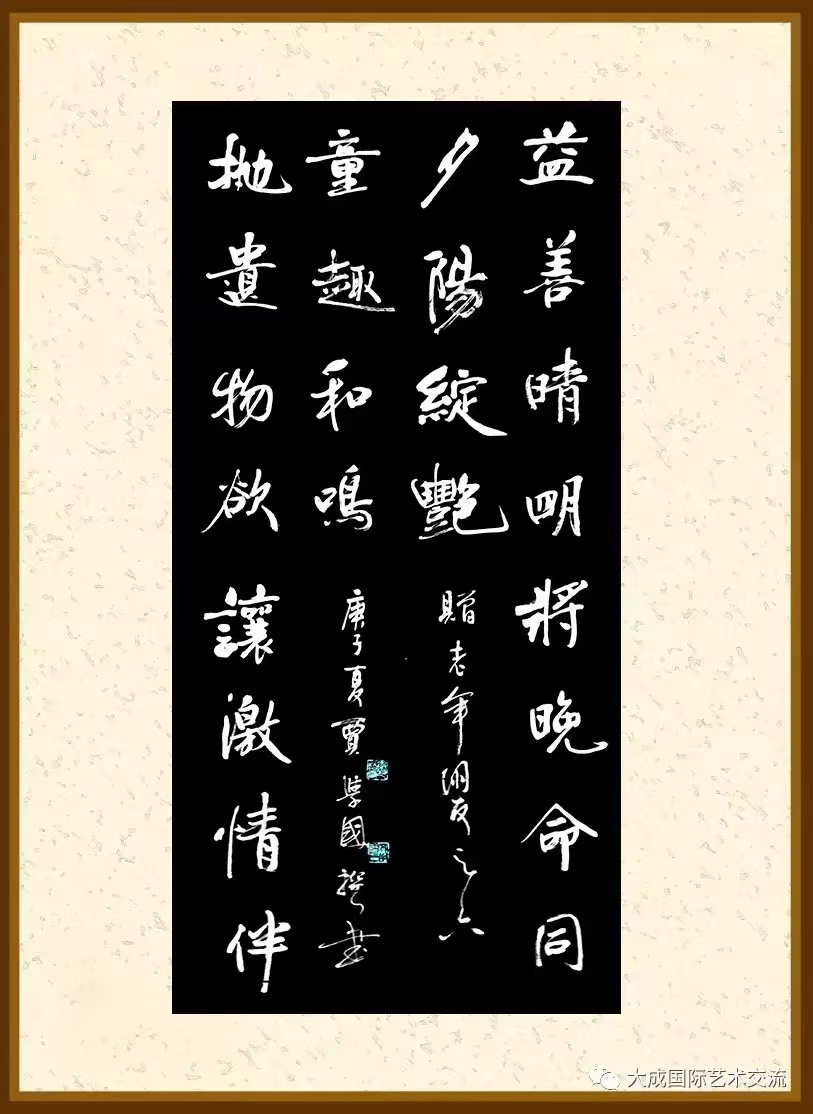 益善晴明將晚命同
夕陽綻艷
拋遺物欲讓激情伴
童趣和鳴
贈老年朋友之六
庚子夏賈學國撰書
大成国际艺术交流